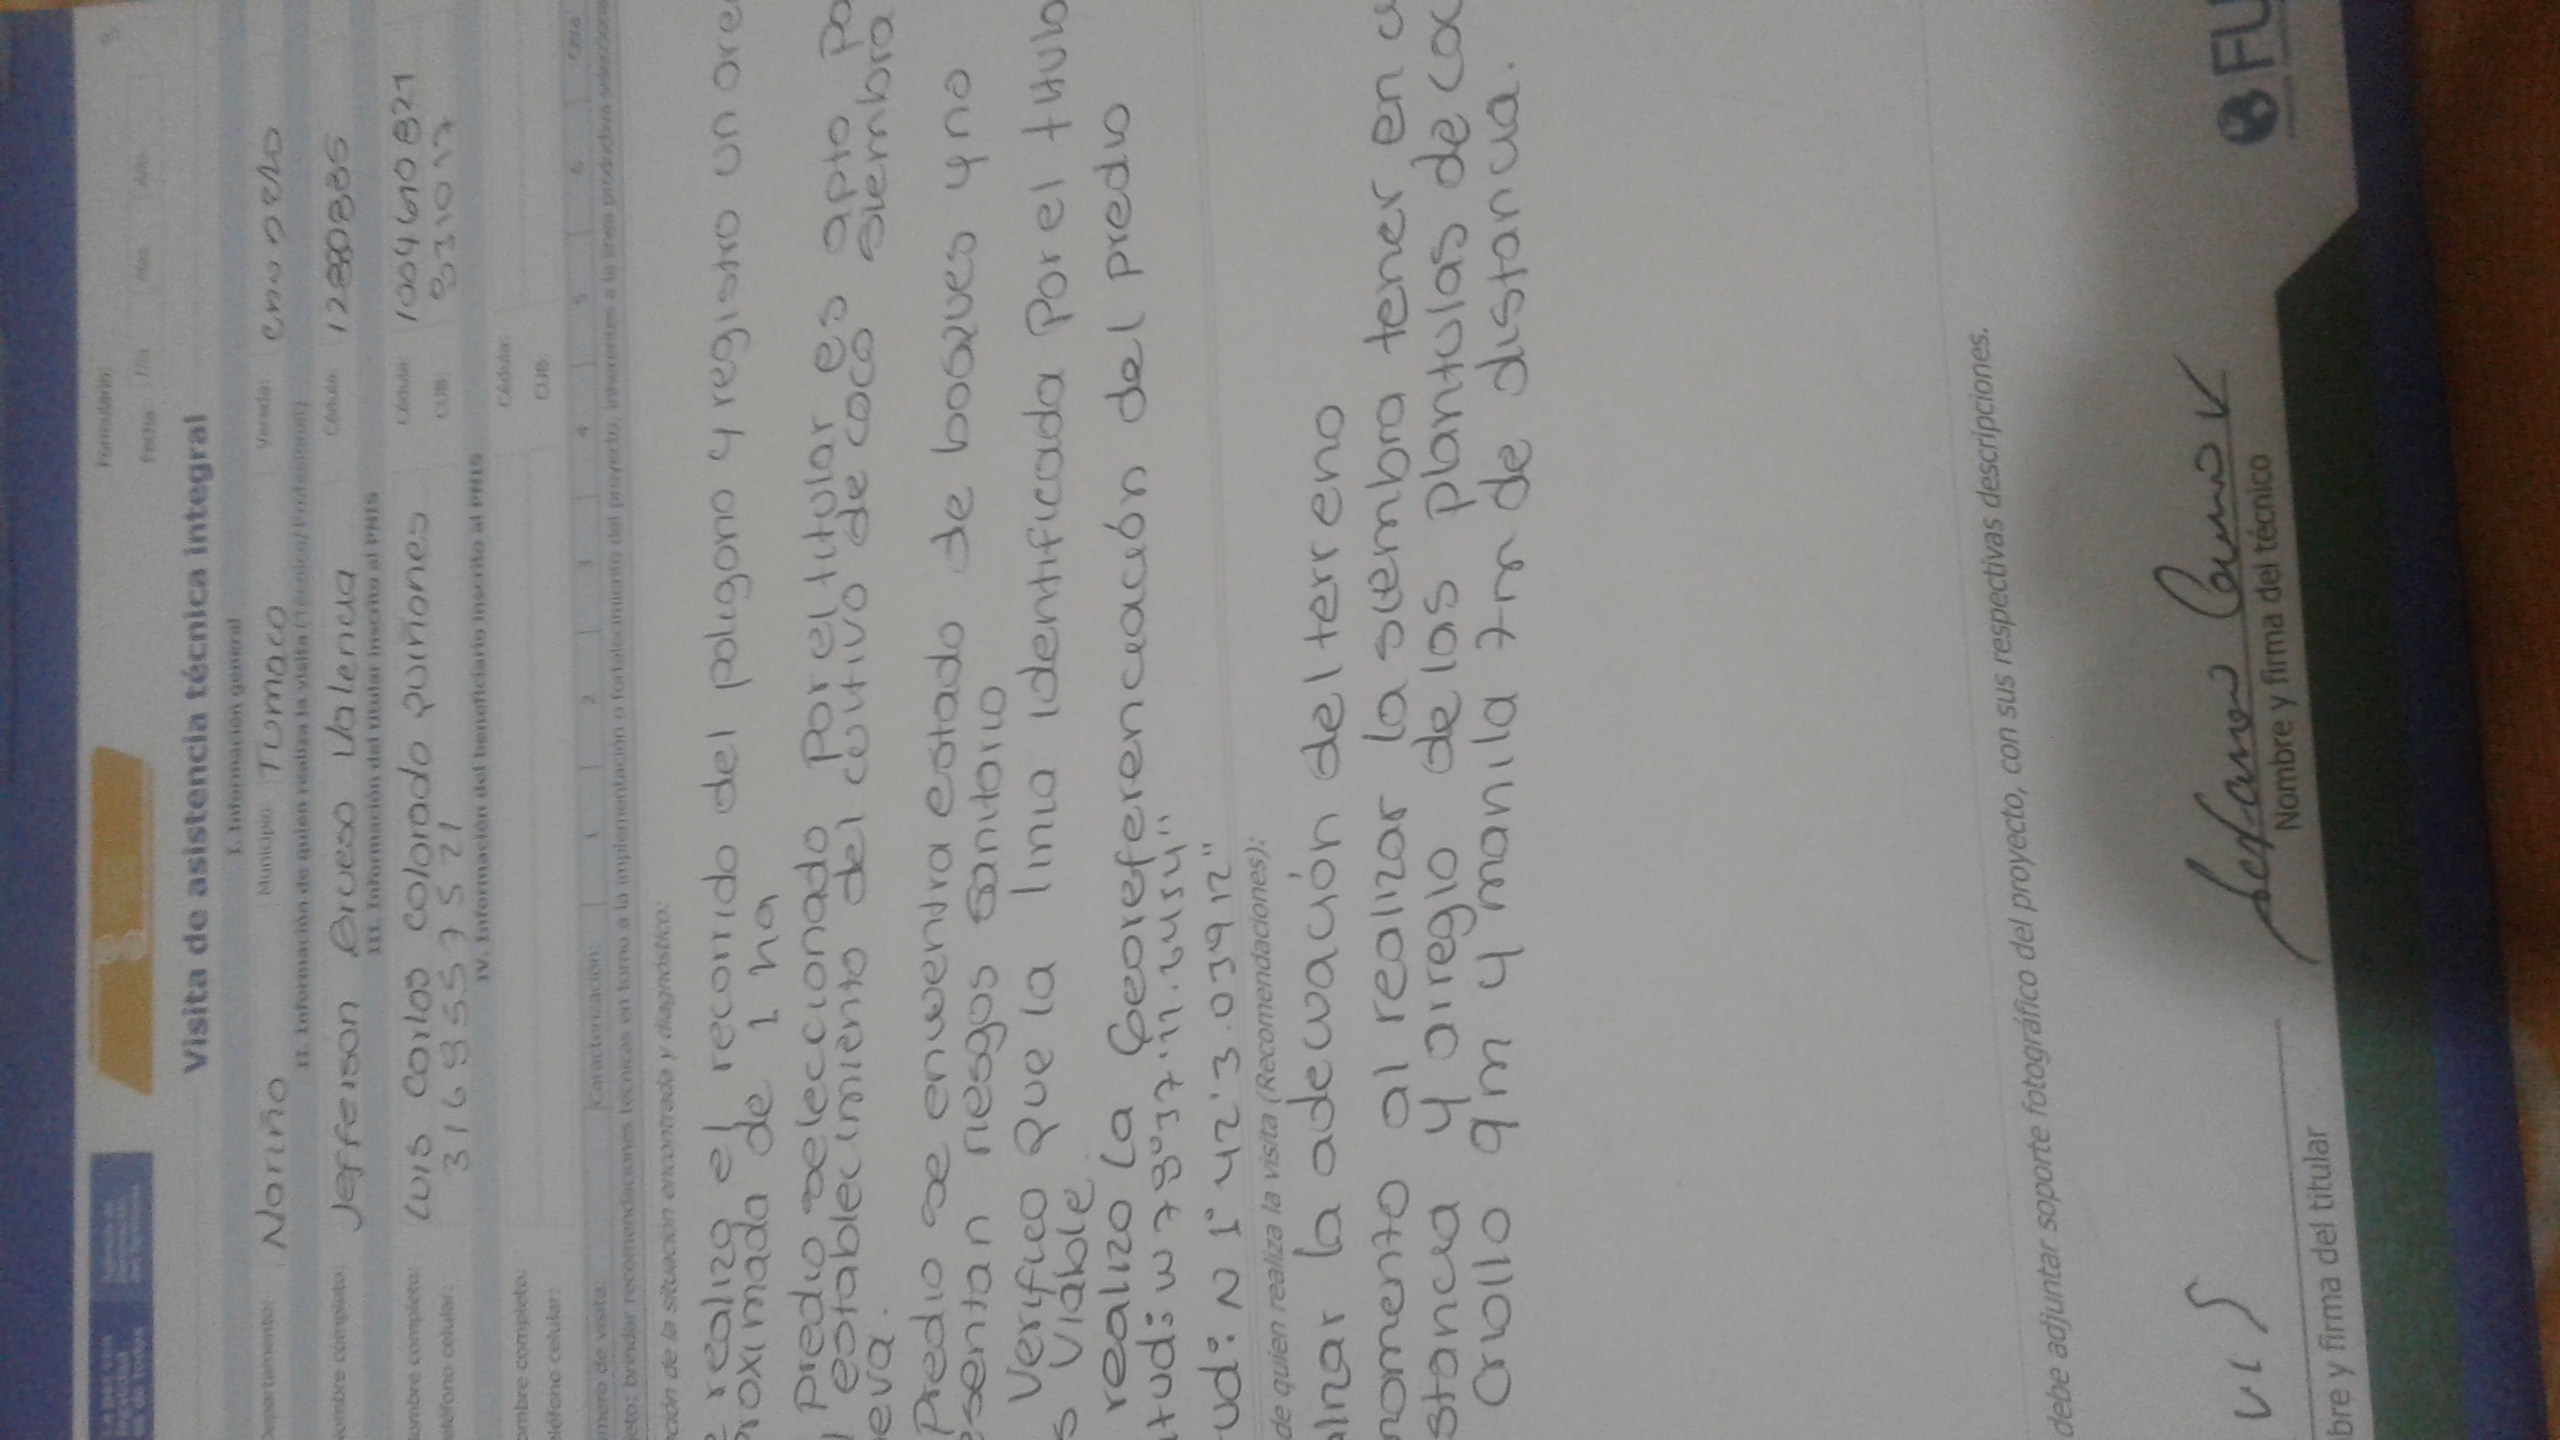 Formulario:
Fecha: Día Mes Año
Visita de asistencia técnica integral
I. Información general
Departamento: Nariño Municipio: Tumaco Vereda:
II. Información de quien realiza la visita (Técnico/Profesional)
Nombre completo: Jefferson Valencia Cédula:
III. Información del titular inscrito al PNIS
Nombre completo: Luis Carlos Colorado Quiñones Cédula: 1004610821
Teléfono celular: CUB:
IV. Información del beneficiario inscrito al PNIS
ombre completo: Cédula:
eléfono celular: CUB:
mero de visita: Caracterización: 1 2 3 4 5 6 Otra
eto: brindar recomendaciones técnicas en torno a la implementación o fortalecimiento del proyecto, inherentes a la línea productiva
ción de la situación encontrada y diagnóstico:
realizo el recorrido del poligono y registro un
roximada de 1 ha
Predio seleccionado por el titular es apto
establecimiento del cultivo de coco siembra
eva.
Predio se encuentra estado de bosques y no
esentan riesgos sanitario
Verifico que la linia identificada por el
s viable
realizo la Georeferenceación del predio
tud: W 78°37'11.
ud: N 1°42'3.03912"
de quien realiza la visita (Recomendaciones):
alizar la adecuación del terreno
momento al realizar la siembra tener en
stancia y arreglo de las plantulas de
criollo 9m y manila 7m de distancia.
debe adjuntar soporte fotográfico del proyecto, con sus respectivas descripciones.
bre y firma del titular Nombre y firma del técnico
FU